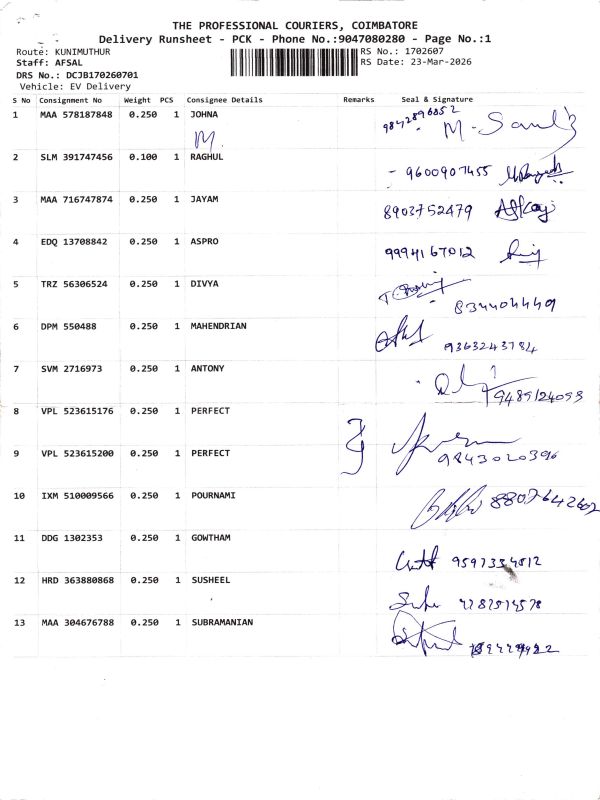 THE PROFESSIONAL COURIERS, COIMBATORE
Delivery Runsheet - PCK - Phone No.:9047080280 - Page No.:1
Route: KUNIMUTHUR RS No.: 1702607
Staff: AFSAL RS Date: 23-Mar-2026
DRS No.: DCJB170260701
Vehicle: EV Delivery
S No Consignment No Weight PCS Consignee Details Remarks Seal & Signature
1 MAA 578187848 0.250 1 JOHNA
M.
2 SLM 391747456 0.100 1 RAGHUL
9600907455
3 MAA 716747874 0.250 1 JAYAM
8903752479
4 EDQ 13708842 0.250 1 ASPRO
9994167012
5 TRZ 56306524 0.250 1 DIVYA
6 DPM 550488 0.250 1 MAHENDRIAN
9363243784
7 SVM 2716973 0.250 1 ANTONY
9489124093
8 VPL 523615176 0.250 1 PERFECT
9 VPL 523615200 0.250 1 PERFECT
9843020396
10 IXM 510009566 0.250 1 POURNAMI
8807642602
11 DDG 1302353 0.250 1 GOWTHAM
12 HRD 363880868 0.250 1 SUSHEEL
13 MAA 304676788 0.250 1 SUBRAMANIAN